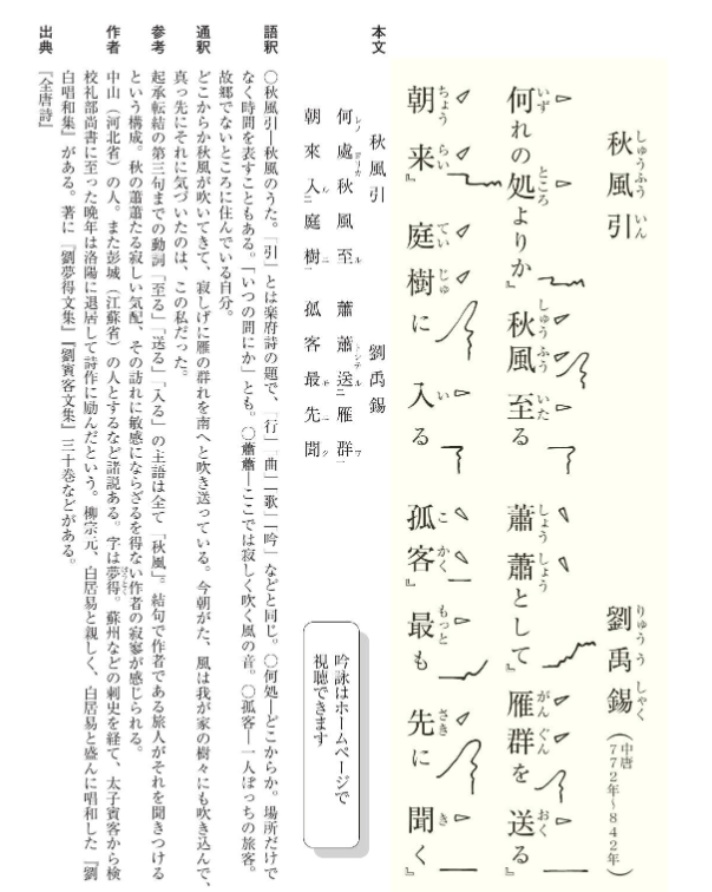 秋風引
しゅうふういん
劉禹錫
りゅううしゃく
(中唐 772年〜842年)
何れの処よりか』秋風至る 蕭蕭として』雁群を送る』
いず ところ しゅうふういた しょうしょう がんぐん おく
朝来』庭樹に入る 孤客』最も先に聞く』
ちょうらい ていじゅ い こかく もっと さき き
本文
秋風引 劉禹錫
何レノ處ヨリカ秋風至ル 蕭蕭トシテ送ル二雁群ヲ一
朝來入ル二庭樹ニ一 孤客最モ先ニ聞ク
吟詠はホームページで
視聴できます
語釈 〇秋風引―秋風のうた。「引」とは楽府詩の題で、「行」「曲」「歌」「吟」などと同じ。〇何処―どこからか。場所だけで
なく時間を表すこともある。「いつの間にか」とも。〇蕭蕭―ここでは寂しく吹く風の音。〇孤客―一人ぼっちの旅客。
故郷でないところに住んでいる自分。
通釈 どこからか秋風が吹いてきて、寂しげに雁の群れを南へと吹き送っている。今朝がた、風は我が家の樹々にも吹き込んで、
真っ先にそれに気づいたのは、この私だった。
参考 起承転結の第三句までの動詞「至る」「送る」「入る」の主語は全て「秋風」。結句で作者である旅人がそれを聞きつける
という構成。秋の蕭蕭たる寂しい気配、その訪れに敏感にならざるを得ない作者の寂寥が感じられる。
作者 中山(河北省)の人。また彭城(江蘇省)の人とするなど諸説ある。字は夢得。蘇州などの刺史を経て、太子賓客から検
ぼうとく
校礼部尚書に至った晩年は洛陽に退居して詩作に励んだという。柳宗元、白居易と親しく、白居易と盛んに唱和した『劉
白唱和集』がある。著に『劉夢得文集』『劉賓客文集』三十巻などがある。
出典 『全唐詩』